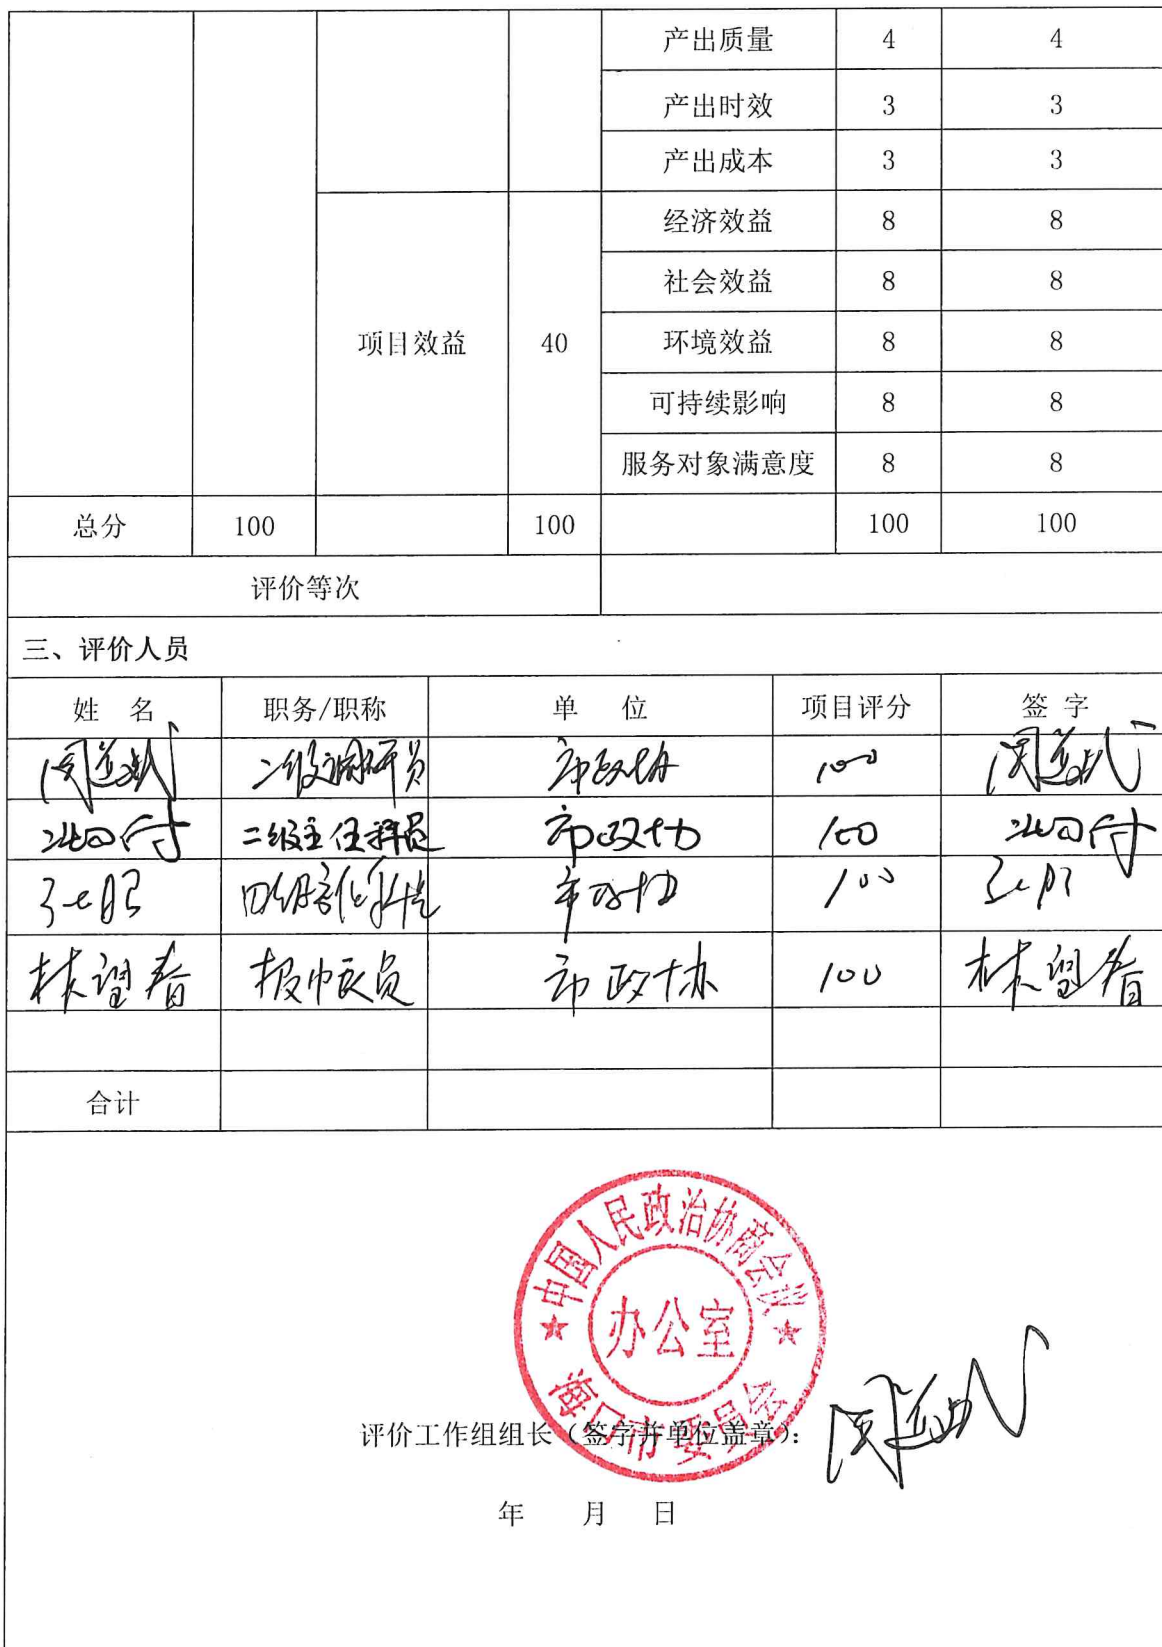 产出质量 4 4
产出时效 3 3
产出成本 3 3
项目效益 40 经济效益 8 8
社会效益 8 8
环境效益 8 8
可持续影响 8 8
服务对象满意度 8 8
总分 100 100 100 100
评价等次
三、评价人员
姓 名 职务/职称 单 位 项目评分 签 字
二级调研员 市政协 100
二级主任科员 市政协 100
市政协 100
林望春 市政协 100 林望春
合计
中国人民政治协商会议
办公室
海口市委员会
评价工作组组长（签字并单位盖章）：
年 月 日